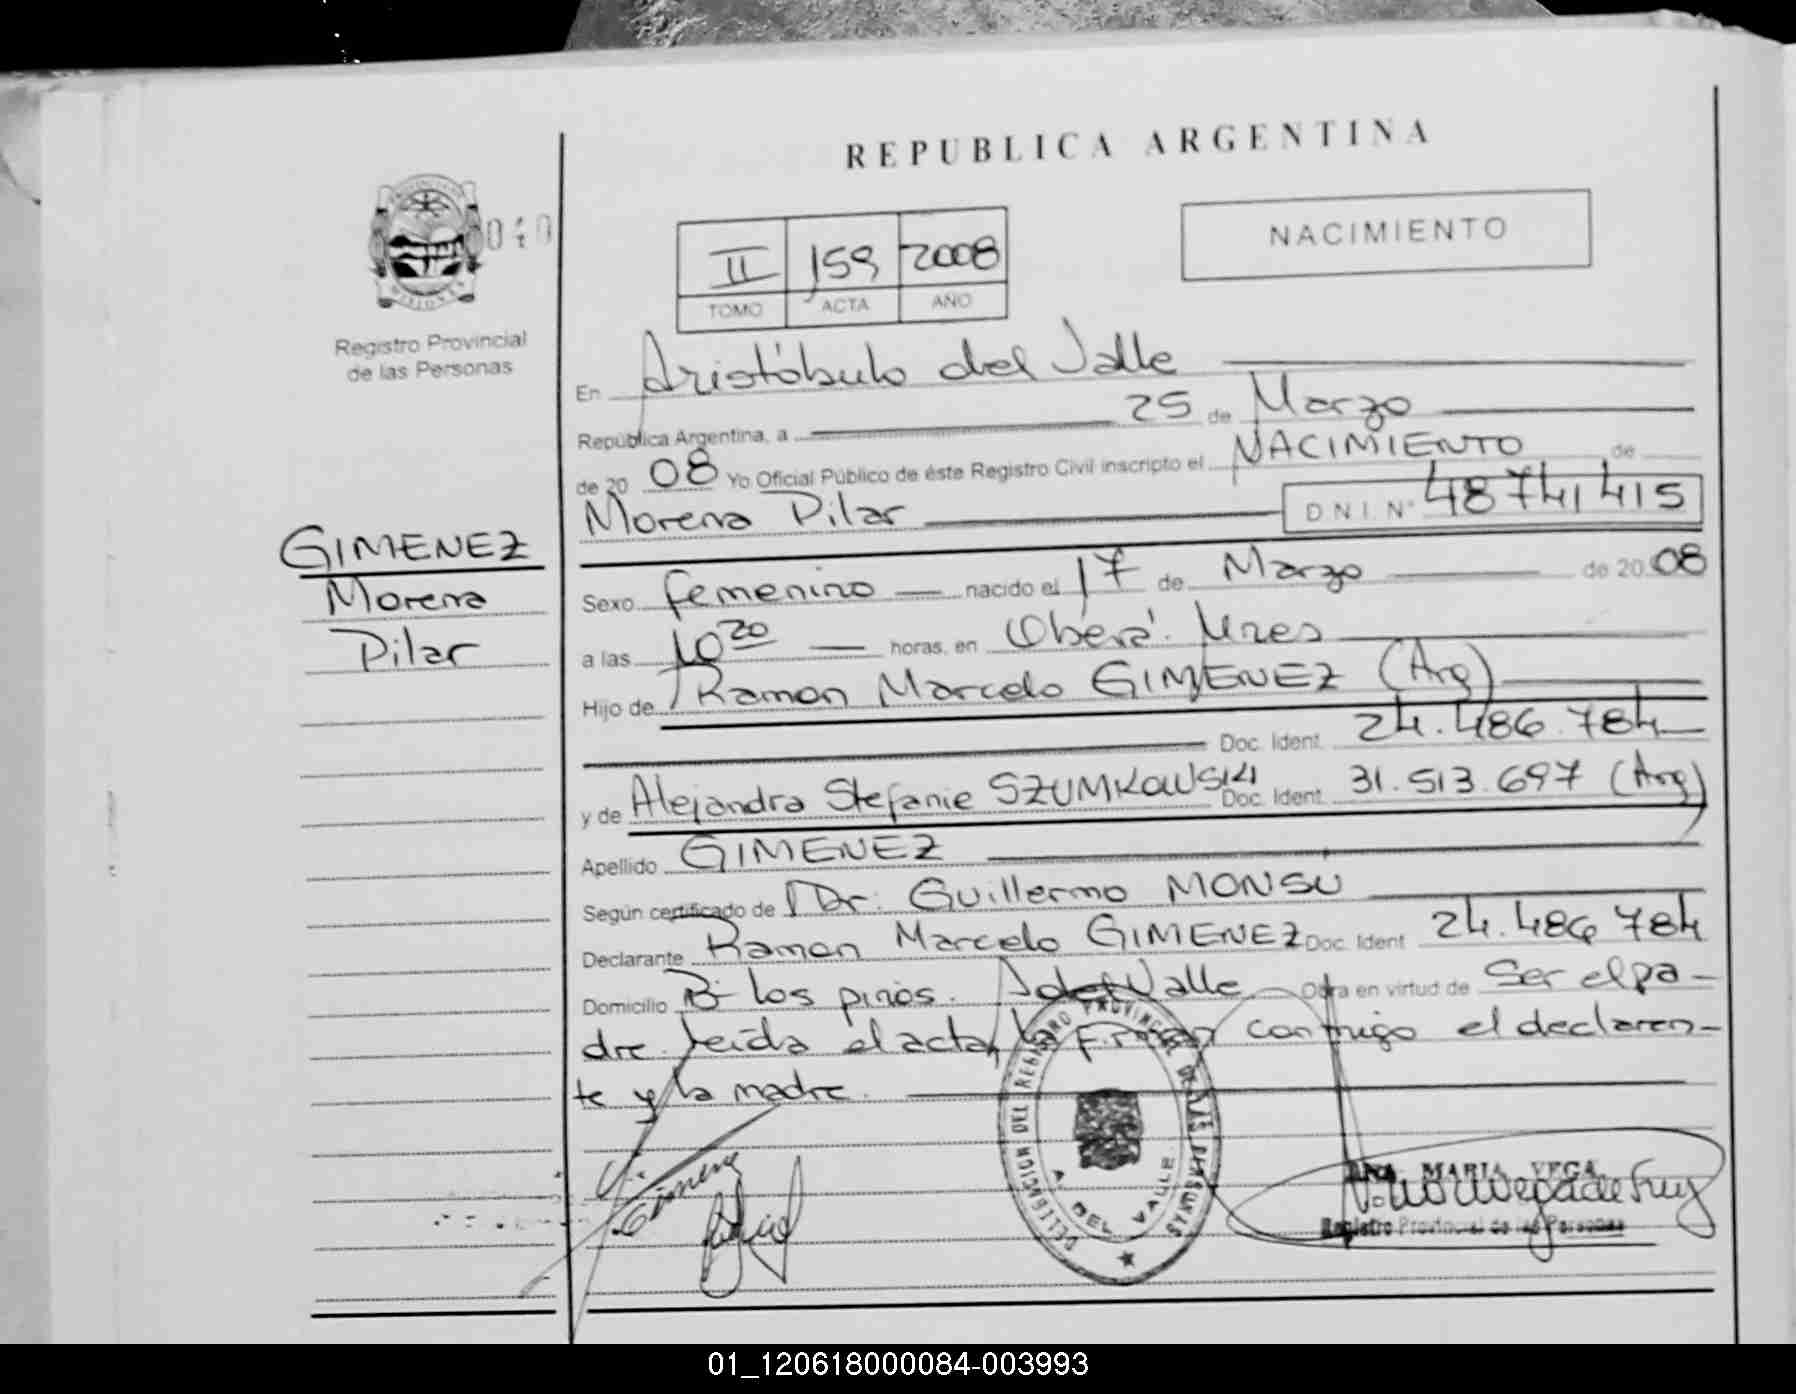 REPUBLICA ARGENTINA
NACIMIENTO
II 159 2008
TOMO ACTA AÑO
MISIONES
Registro Provincial
de las Personas
En Aristóbulo del Valle
República Argentina, a 25 de Marzo
de 20 08 Yo Oficial Público de éste Registro Civil inscripto el NACIMIENTO de
Morena Pilar D.N.I. Nº 48741415
GIMENEZ
Morena
Pilar
Sexo femenino nacido el 17 de Marzo de 20 08
a las 10 20 horas, en Oberá. Mnes
Hijo de Ramon Marcelo GIMENEZ (Arg)
Doc. Ident. 24.486.784
y de Alejandra Stefanie SZUMKOWSKI Doc. Ident. 31.513.697 (Arg)
Apellido GIMENEZ
Según certificado de Dr. Guillermo MONSU
Declarante Ramon Marcelo GIMENEZ Doc. Ident 24.486 784
Domicilio Bº los pinos. A del Valle Obra en virtud de Ser el pa-
dre. Leída el acta, la Firman conmigo el declaran-
te y la madre.
DELEGACION DEL REGISTRO PROVINCIAL DE LAS PERSONAS
A. DEL VALLE
Gimenez
ANA MARIA VEGA
Registro Provincial de las Personas
01_120618000084-003993